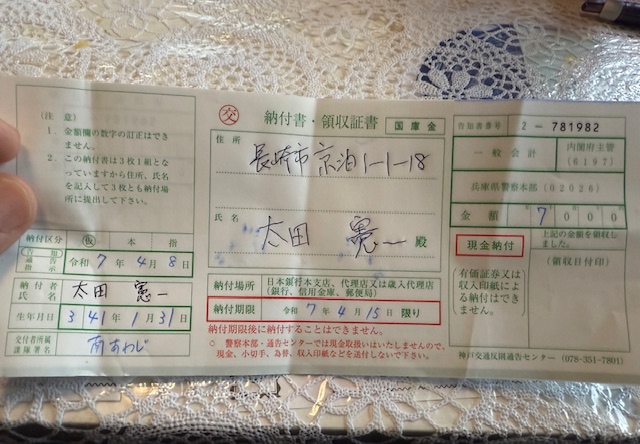 (注 意)
1. 金額欄の数字の訂正はできません。
2. この納付書は3枚1組となっていますから住所、氏名を記入して3枚とも納付場所に提出して下さい。
納付区分 仮 本 指
告知 令和 7 年 4 月 8 日
納付者氏名 太田 憲一
生年月日 3 41 年 1 月 31 日
交付者所属課隊署名 南あわじ
交 納付書・領収証書 国庫金
住所
長崎市京泊1-1-18
氏名
太田 憲一 殿
納付場所 日本銀行本支店、代理店又は歳入代理店(銀行、信用金庫、郵便局)
納付期限 令和 7 年 4 月 15 日 限り
納付期限後に納付することはできません。
○ 警察本部・通告センターでは現金取扱いはいたしませんので、現金、小切手、為替、収入印紙などを送付しないで下さい。
告知書番号 2-781982
一般会計 内閣府主管 (6197)
兵庫県警察本部 (02026)
金額 7000
現金納付
有価証券又は収入印紙による納付はできません。
上記の金額を領収しました。
(領収日付印)
神戸交通反則通告センター (078-351-7801)